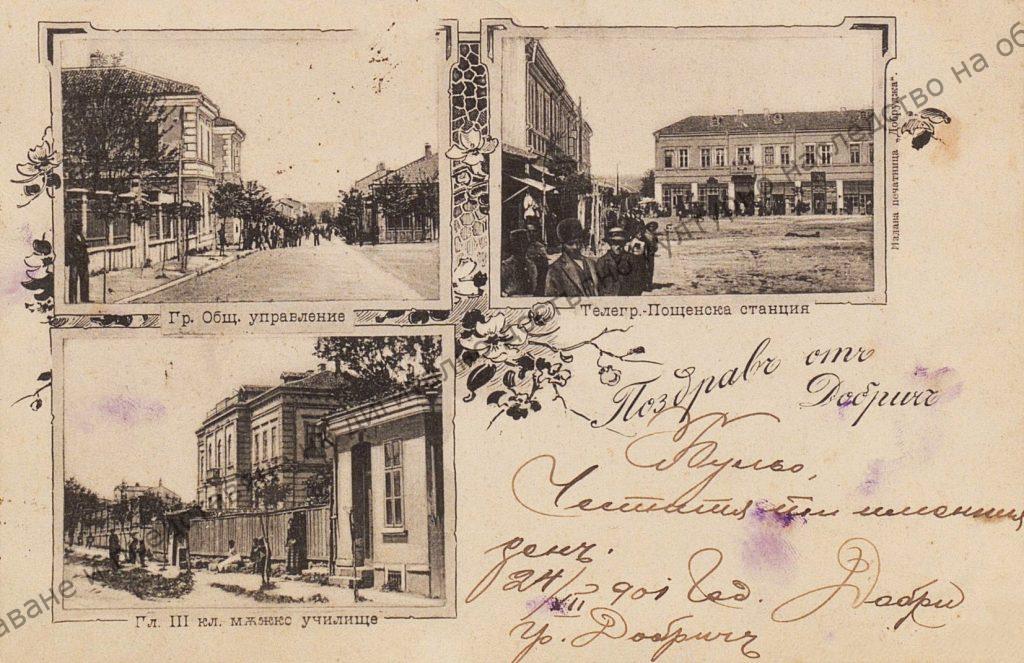 Гр. Общ. управление
Телегр.-Пощенска станция
Издава печатница „Добруджа“.
Гл. III кл. мѫжко училище
Поздравъ отъ
Добричъ
Кульо,
Честитя ти имения
денъ.
24/VII 901 год. Добри
гр. Добричъ